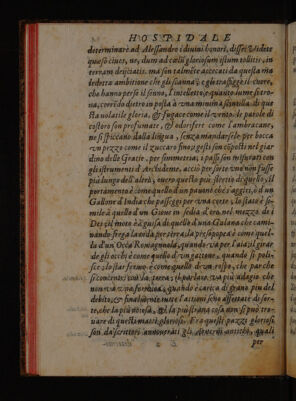 HOSPIDALE
determinarò ad Alessandro i diuini honori, disse: Videte
quæso ciues, ne, dum ad cœlū gloriosum istum tollitis, in
terram deijciatis. ma son talmēte accecati da questa ma
ledetta ambitione che gli scanna, & gli trafigge il core,
che hanno perso il senno, l'intelletto, e quanto lume si tro-
ua, corrēdo dietro in posta à vna minima scintilla di que
sta volatile gloria, & fugace come il vento. le parole di
costoro son profumate, & odorifere come l'ambracane,
ne si spiccano dalla lingua, senza mandarsele per bocca
vn pezzo come il zuccaro fino; i gesti son cōposti nel giar
dino delle Gratie, per simmetria; i passi son misurati con
gli istrumenti d'Archidemo, acciò per sorte vno non fusse
più lungo dell'altro, vitio questo più
portamento è come quello d'un pauone che s'aggiri, ò d'un
Gallone d'India che passeggi per vna corte, lo stare è si-
mile à quello d'un Gioue in sedia d'oro nel mezzo de i
Dei; il moto è à guisa di quello d'una Galana che cami-
nando frega la onda per terra, la prospopea è come quel-
la d'un Occa Romagnuola, quando và per l'aia, il girar
de gli occhi è come quello d'un gattone, quando si poli-
sce; lo star fermo è come quello d'un rospo, che par che
più adagio che
non và vna formica, quando è carica di grano piu del
debito, & finalmente tutte l'attioni sono affettate di sor-
te, che la più noiosa, & la più strana cosa non si può tro-
uare di questi matti gloriosi. Fra questi pazzi gloriosi
son da' scrittori annouerati gli antichi, quali
per